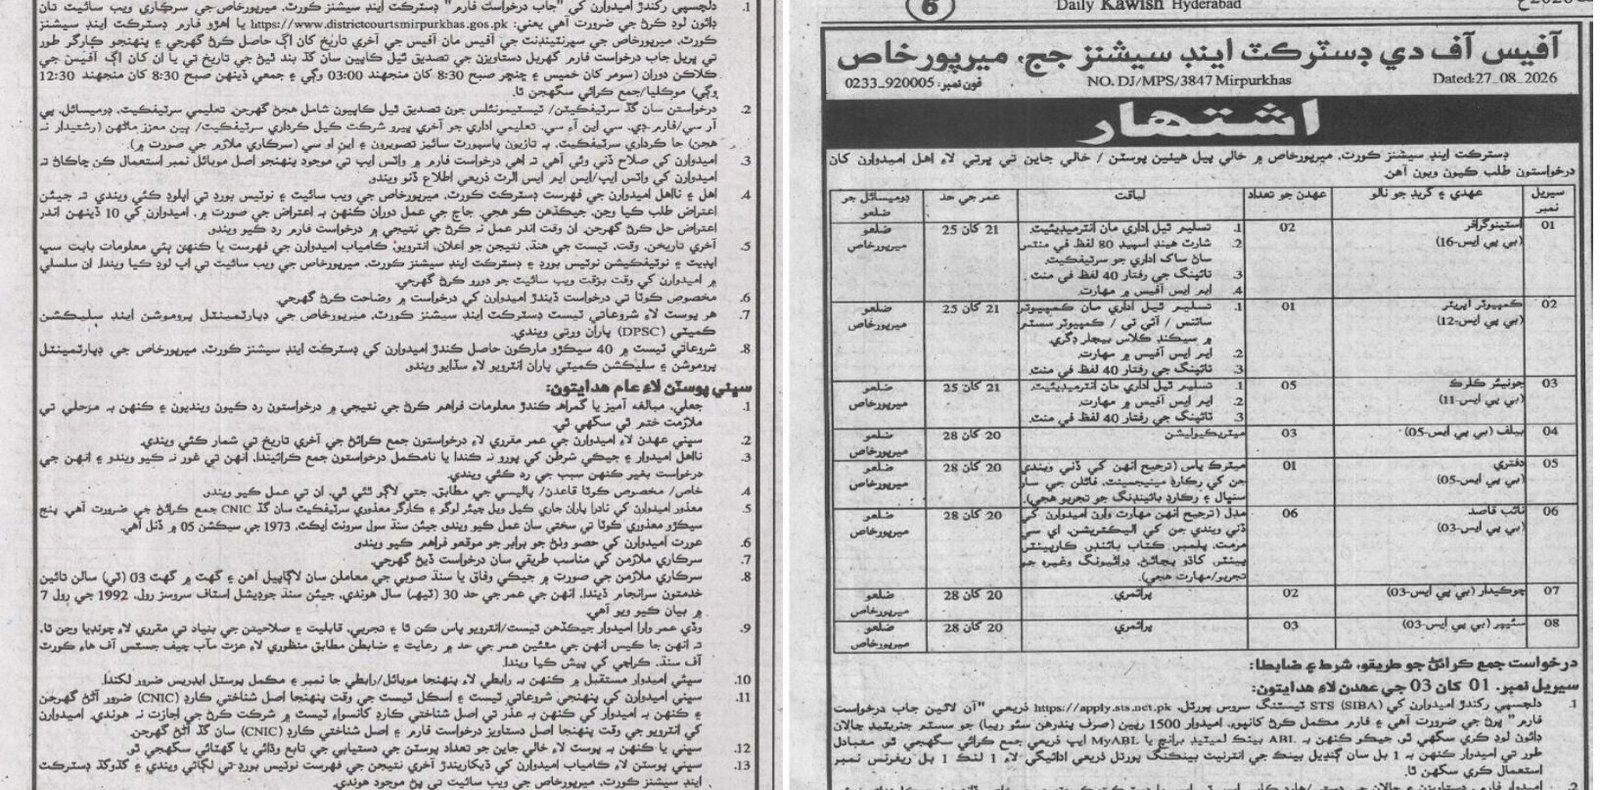 6
Daily Kawish Hyderabad
آفيس آف دي ڊسٽرڪٽ اينڊ سيشنز جج، ميرپورخاص
Dated:27_08_2026
NO. DJ/MPS/3847 Mirpurkhas
فون نمبر: 920005_0233
اشتهار
ڊسٽرڪٽ اينڊ سيشنز ڪورٽ، ميرپورخاص ۾ خالي پيل هيٺين پوسٽن / خالي جاين تي ڀرتي لاءِ اهل اميدوارن کان
درخواستون طلب ڪيون ويون آهن.
سيريل نمبر
عهدي ۽ گريڊ جو نالو
عهدن جو تعداد
لياقت
عمر جي حد
ڊوميسائل جو ضلعو
01
اسٽينوگرافر
(بي پي ايس-16)
02
1. تسليم ٿيل اداري مان انٽرميڊيئيٽ.
2. شارٽ هينڊ اسپيڊ 80 لفظ في منٽس
سان ساک اداري جو سرٽيفڪيٽ.
3. ٽائپنگ جي رفتار 40 لفظ في منٽ.
4. ايم ايس آفيس ۾ مهارت.
21 کان 25
ضلعو
ميرپورخاص
02
ڪمپيوٽر آپريٽر
(بي پي ايس-12)
01
1. تسليم ٿيل اداري مان ڪمپيوٽر
سائنس / آئي ٽي / ڪمپيوٽر سسٽم
۾ سيڪنڊ ڪلاس بيچلر ڊگري.
2. ايم ايس آفيس ۾ مهارت.
3. ٽائپنگ جي رفتار 40 لفظ في منٽ.
21 کان 25
ضلعو
ميرپورخاص
03
جونيئر ڪلرڪ
(بي پي ايس-11)
05
1. تسليم ٿيل اداري مان انٽرميڊيئيٽ.
2. ايم ايس آفيس ۾ مهارت.
3. ٽائپنگ جي رفتار 40 لفظ في منٽ.
21 کان 25
ضلعو
ميرپورخاص
04
بيلف (بي پي ايس-05)
03
ميٽريڪيوليشن
20 کان 28
ضلعو
ميرپورخاص
05
دفتري
(بي پي ايس-05)
01
ميٽرڪ پاس (ترجيح انهن کي ڏني ويندي
جن کي رڪارڊ مينيجمينٽ، فائلن جي سار
سنڀال ۽ رڪارڊ بائينڊنگ جو تجربو هجي).
20 کان 28
ضلعو
ميرپورخاص
06
نائب قاصد
(بي پي ايس-03)
06
مڊل (ترجيح انهن مهارت وارن اميدوارن کي
ڏني ويندي جن کي اليڪٽريشن، اي سي
مرمت، پلمبر، ڪتاب بائنڊر، ڪارپينٽر،
پينٽر، کاڌو پچائڻ، ڊرائيونگ وغيره جو
تجربو/مهارت هجي).
20 کان 28
ضلعو
ميرپورخاص
07
چوڪيدار (بي پي ايس-03)
02
پرائمري
20 کان 28
ضلعو
ميرپورخاص
08
سئيپر (بي پي ايس-03)
03
پرائمري
20 کان 28
ضلعو
ميرپورخاص
درخواست جمع ڪرائڻ جو طريقو، شرط ۽ ضابطا:
سيريل نمبر. 01 کان 03 جي عهدن لاءِ هدايتون:
1. دلچسپي رکندڙ اميدوارن کي STS (SIBA) ٽيسٽنگ سروس پورٽل، https://apply.sts.net.pk ذريعي "آن لائين جاب درخواست
فارم" ڀرڻ جي ضرورت آهي ۽ فارم مڪمل ڪرڻ کانپوءِ، اميدوار 1500 رپين (صرف پندرهن سئو رپيا) جو سسٽم جنريٽيڊ چالان
ڊائون لوڊ ڪري سگهي ٿو، جيڪو ڪنهن به ABL بينڪ لميٽيڊ برانچ يا MyABL ايپ ذريعي جمع ڪرائي سگهجي ٿو. متبادل
طور تي اميدوار ڪنهن به 1 بل سان ڳنڍيل بينڪ جي انٽرنيٽ بينڪنگ پورٽل ذريعي ادائيگي لاءِ 1 لنڪ 1 بل ريفرنس نمبر
استعمال ڪري سگهن ٿا.
1. دلچسپي رکندڙ اميدوارن کي "جاب درخواست فارم" ڊسٽرڪٽ اينڊ سيشنز ڪورٽ، ميرپورخاص جي سرڪاري ويب سائيٽ تان
ڊائون لوڊ ڪرڻ جي ضرورت آهي يعني: https://www.districtcourtsmirpurkhas.gos.pk يا اهڙو فارم ڊسٽرڪٽ اينڊ سيشنز
ڪورٽ، ميرپورخاص جي سپرنٽينڊنٽ جي آفيس مان آفيس جي آخري تاريخ کان اڳ حاصل ڪرڻ گهرجي ۽ پنهنجو ڪارگر طور
تي ڀريل جاب درخواست فارم گهربل دستاويزن جي تصديق ٿيل ڪاپين سان گڏ بند ٿيڻ جي تاريخ تي يا ان کان اڳ آفيس جي
ڪلاڪن دوران (سومر کان خميس ۽ ڇنڇر صبح 8:30 کان منجهند 03:00 وڳي ۽ جمعي ڏينهن صبح 8:30 کان منجهند 12:30
وڳي) موڪليا/جمع ڪرائي سگهجن ٿا.
2. درخواستن سان گڏ سرٽيفڪيٽن/ ٽيسٽيمونيئلس جون تصديق ٿيل ڪاپيون شامل هجڻ گهرجن. تعليمي سرٽيفڪيٽ، ڊوميسائل، پي
آر سي/فارم-ڊي، سي اين آءِ سي، تعليمي اداري جو آخري ڀيرو شرڪت ڪيل ڪرداري سرٽيفڪيٽ/ ٻين معزز ماڻهن (رشتيدار نه
هجن) جا ڪرداري سرٽيفڪيٽ، ٻه تازيون پاسپورٽ سائيز تصويرون ۽ اين او سي (سرڪاري ملازم جي صورت ۾).
3. اميدوارن کي صلاح ڏني وئي آهي ته اهي درخواست فارم ۾ واٽس ايپ تي موجود پنهنجو اصل موبائل نمبر استعمال ڪن ڇاڪاڻ ته
اميدوارن کي واٽس ايپ/ايس ايم ايس الرٽ ذريعي اطلاع ڏنو ويندو.
4. اهل ۽ نااهل اميدوارن جي فهرست ڊسٽرڪٽ ڪورٽ، ميرپورخاص جي ويب سائيٽ ۽ نوٽيس بورڊ تي اپلوڊ ڪئي ويندي ته جيئن
اعتراض طلب ڪيا وڃن، جيڪڏهن ڪو هجي. جاچ جي عمل دوران ڪنهن به اعتراض جي صورت ۾، اميدوارن کي 10 ڏينهن اندر
اعتراض حل ڪرڻ گهرجن. ان وقت اندر عمل نه ڪرڻ جي نتيجي ۾ درخواست فارم رد ڪيو ويندو.
5. آخري تاريخن، وقت، ٽيسٽ جي هنڌ، نتيجن جو اعلان، انٽرويو، ڪامياب اميدوارن جي فهرست يا ڪنهن ٻئي معلومات بابت سڀ
اپڊيٽ ۽ نوٽيفڪيشن نوٽيس بورڊ ۽ ڊسٽرڪٽ اينڊ سيشنز ڪورٽ، ميرپورخاص جي ويب سائيٽ تي اپ لوڊ ڪيا ويندا. ان سلسلي
۾ اميدوارن کي وقت بوقت ويب سائيٽ جو دورو ڪرڻ گهرجي.
6. مخصوص ڪوٽا تي درخواست ڏيندڙ اميدوارن کي درخواست ۾ وضاحت ڪرڻ گهرجي.
7. هر پوسٽ لاءِ شروعاتي ٽيسٽ ڊسٽرڪٽ اينڊ سيشنز ڪورٽ، ميرپورخاص جي ڊپارٽمينٽل پروموشن اينڊ سليڪشن
ڪميٽي (DPSC) پاران ورتي ويندي.
8. شروعاتي ٽيسٽ ۾ 40 سيڪڙو مارڪون حاصل ڪندڙ اميدوارن کي ڊسٽرڪٽ اينڊ سيشنز ڪورٽ، ميرپورخاص جي ڊپارٽمينٽل
پروموشن ۽ سليڪشن ڪميٽي پاران انٽرويو لاءِ سڏايو ويندو.
سڀني پوسٽن لاءِ عام هدايتون:
1. جعلي، مبالغه آميز يا گمراهه ڪندڙ معلومات فراهم ڪرڻ جي نتيجي ۾ درخواستون رد ڪيون وينديون ۽ ڪنهن به مرحلي تي
ملازمت ختم ٿي سگهي ٿي.
2. سڀني عهدن لاءِ اميدوارن جي عمر مقرري لاءِ درخواستون جمع ڪرائڻ جي آخري تاريخ تي شمار ڪئي ويندي.
3. نااهل اميدوار ۽ جيڪي شرطن کي پورو نه ڪندا يا نامڪمل درخواستون جمع ڪرائيندا، انهن تي غور نه ڪيو ويندو ۽ انهن جي
درخواست بغير ڪنهن سبب جي رد ڪئي ويندي.
4. خاص/ مخصوص ڪوٽا قاعدن/ پاليسي جي مطابق، جتي لاڳو ٿئي ٿي، ان تي عمل ڪيو ويندو.
5. معذور اميدوارن کي نادرا پاران جاري ڪيل ويل چيئر لوگو ۽ ڪارگر معذوري سرٽيفڪيٽ سان گڏ CNIC جمع ڪرائڻ جي ضرورت آهي. پنج
سيڪڙو معذوري ڪوٽا تي سختي سان عمل ڪيو ويندو جيئن سنڌ سول سرونٽ ايڪٽ، 1973 جي سيڪشن 05 ۾ ڏنل آهي.
6. عورت اميدوارن کي حصو وٺڻ جو برابر جو موقعو فراهم ڪيو ويندو.
7. سرڪاري ملازمن کي مناسب طريقي سان درخواست ڏيڻ گهرجي.
8. سرڪاري ملازمن جي صورت ۾ جيڪي وفاق يا سنڌ صوبي جي معاملن سان لاڳاپيل آهن ۽ گهٽ ۾ گهٽ 03 (ٽي) سالن تائين
خدمتون سرانجام ڏيندا، انهن جي عمر جي حد 30 (ٽيهه) سال هوندي، جيئن سنڌ جوڊيشل اسٽاف سروسز رول، 1992 جي رول 7
۾ بيان ڪيو ويو آهي.
9. وڏي عمر وارا اميدوار جيڪڏهن ٽيسٽ/انٽرويو پاس ڪن ٿا ۽ تجربي، قابليت ۽ صلاحيتن جي بنياد تي مقرري لاءِ چونڊيا وڃن ٿا،
ته انهن جا ڪيس انهن جي مٿئين عمر جي حد ۾ رعايت ۽ ضابطن مطابق منظوري لاءِ عزت مآب چيف جسٽس آف هاءِ ڪورٽ
آف سنڌ، ڪراچي کي پيش ڪيا ويندا.
10. سڀئي اميدوار مستقبل ۾ ڪنهن به رابطي لاءِ پنهنجا موبائل/رابطي جا نمبر ۽ مڪمل پوسٽل ايڊريس ضرور لکندا.
11. سڀني اميدوارن کي پنهنجي شروعاتي ٽيسٽ ۽ اسڪل ٽيسٽ جي وقت پنهنجا اصل شناختي ڪارڊ (CNIC) ضرور آڻڻ گهرجن
۽ ڪنهن به اميدوار کي ڪنهن به عذر تي اصل شناختي ڪارڊ کانسواءِ ٽيسٽ ۾ شرڪت ڪرڻ جي اجازت نه هوندي. اميدوارن
کي انٽرويو جي وقت پنهنجا اصل دستاويز درخواست فارم ۽ اصل شناختي ڪارڊ (CNIC) سان گڏ آڻڻ گهرجن.
12. سڀني يا ڪنهن به پوسٽ لاءِ خالي جاين جو تعداد پوسٽن جي دستيابي جي تابع وڌائي يا گهٽائي سگهجي ٿو.
13. سڀني پوسٽن لاءِ ڪامياب اميدوارن کي ڏيکاريندڙ آخري نتيجن جي فهرست نوٽيس بورڊ تي لڳائي ويندي ۽ گڏوگڏ ڊسٽرڪٽ
اينڊ سيشنز ڪورٽ، ميرپورخاص جي ويب سائيٽ تي پڻ موجود هوندي.